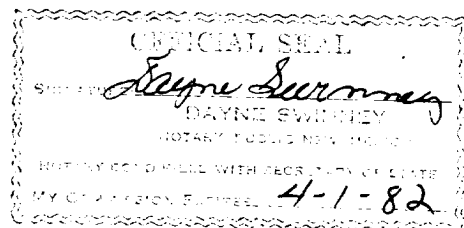 OFFICIAL SEAL
Signature Dayne Swinney
DAYNE SWINNEY
NOTARY PUBLIC NEW MEXICO
NOTARY BOND FILED WITH SECRETARY OF STATE
MY COMMISSION EXPIRES 4-1-82